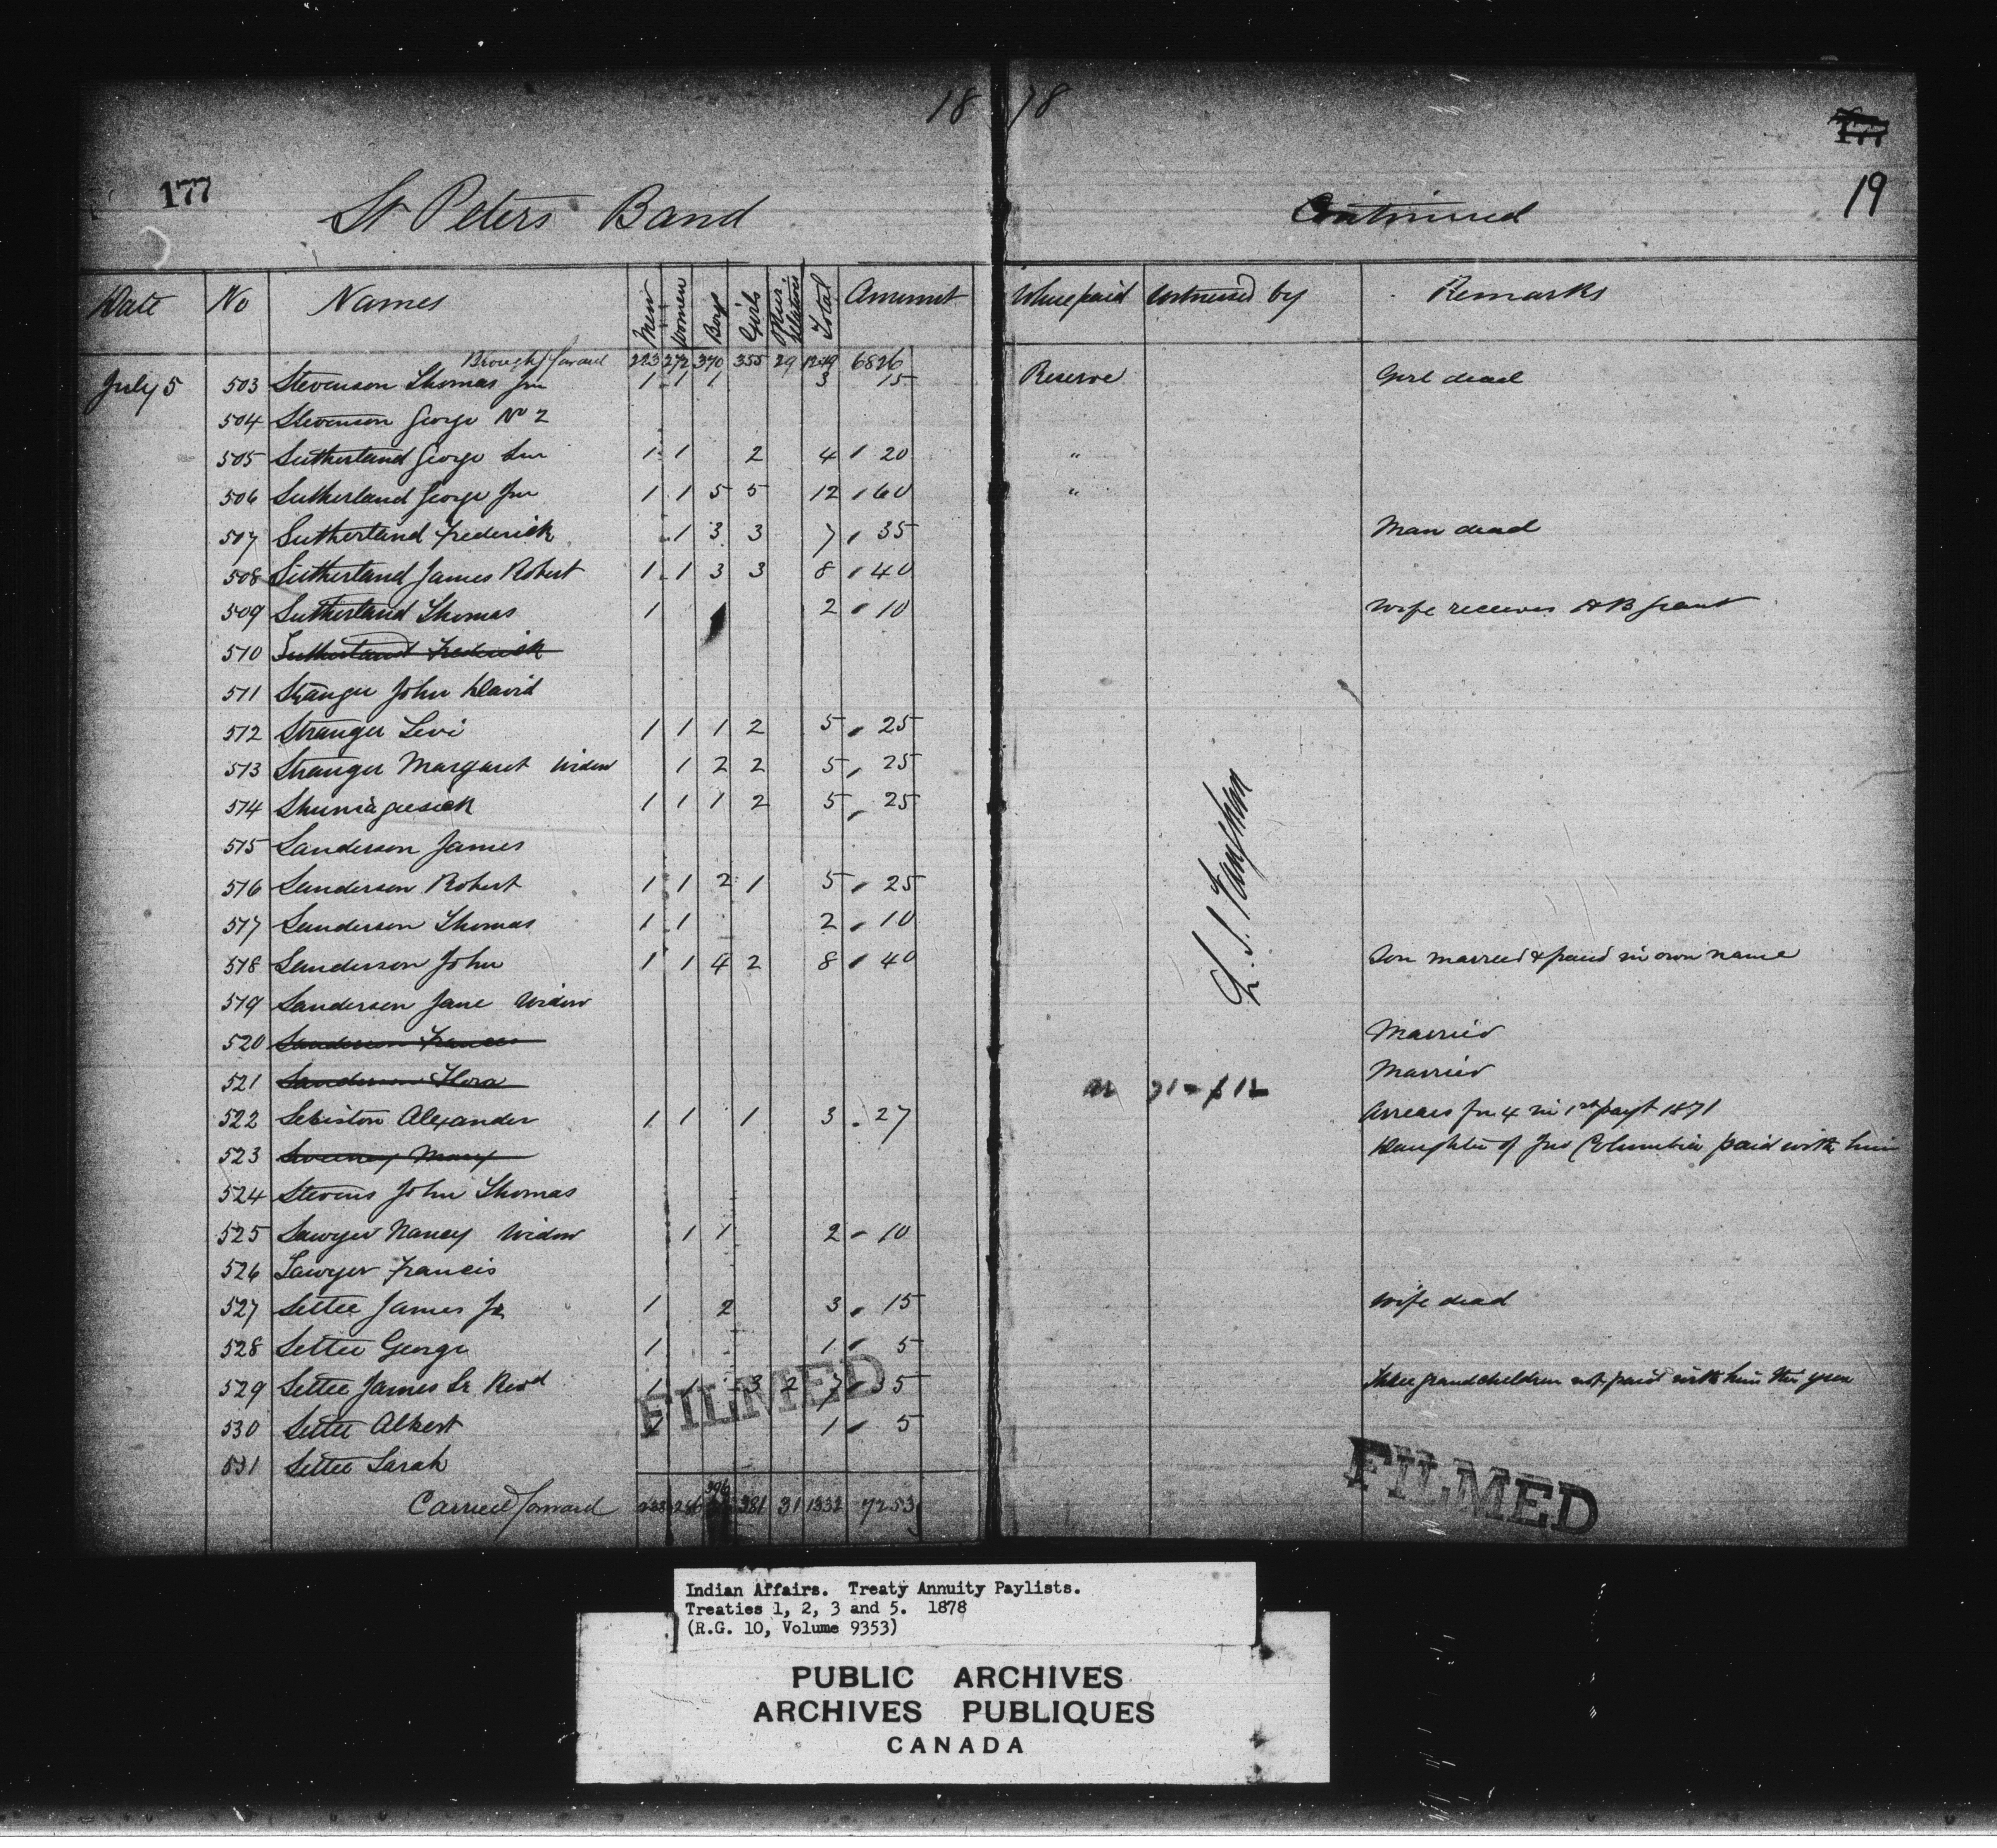 18 78
177
177
19
St Peters Band Continued
Date No Names Men Women Boys Girls Other Relations Total Amount Where paid Witnessed by Remarks
Brought forward 223 272 370 355 29 1249 6826
July 5 503 Stevenson Thomas Jnr 1 1 1 3 15 Reserve Girl dead
504 Stevenson George No 2
505 Sutherland George Snr 1 1 2 4 20 "
506 Sutherland George Jnr 1 1 5 5 12 60 "
507 Sutherland Frederick 1 3 3 7 35 Man dead
508 Sutherland James Robert 1 1 3 3 8 40
509 Sutherland Thomas 1 2 10 Wife receives HB grant
510 Sutherland Frederick
511 Stranger John David
512 Stranger Levi 1 1 1 2 5 25
513 Stranger Margaret Widow 1 2 2 5 25
514 Shuniagiesick 1 1 1 2 5 25
515 Sanderson James
516 Sanderson Robert 1 1 2 1 5 25
517 Sanderson Thomas 1 1 2 10
518 Sanderson John 1 1 4 2 8 40 Son married & paid in own name
519 Sanderson Jane Widow
520 Sanderson Frances Married
521 Sanderson Flora Married
522 Sebiston Alexander 1 1 1 3 27 ar 71 - $12 Arrears for 4 in 1st payt 1871
523 Mary Daughter of Jno Columbia paid with him
524 Stevens John Thomas
525 Sawyer Nancy Widow 1 1 2 10
526 Sawyer Francis
527 Settee James Jr 1 2 3 15 Wife dead
528 Settee George 1 1 5
529 Settee James Sr Revd 1 1 3 2 7 35 Three grandchildren not paid with him this year
530 Settee Albert 1 1 5
531 Settee Sarah
Carried forward 286 396 381 31 1332 7253
FILMED
FILMED
Indian Affairs. Treaty Annuity Paylists.
Treaties 1, 2, 3 and 5. 1878
(R.G. 10, Volume 9353)
PUBLIC ARCHIVES
ARCHIVES PUBLIQUES
CANADA